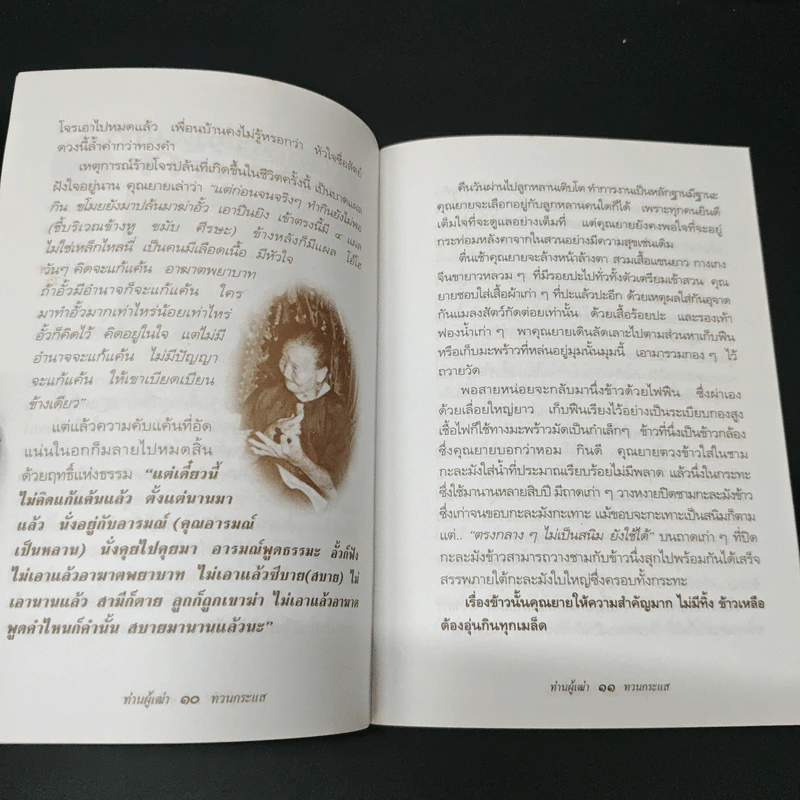 โจรเอาไปหมดแล้ว เพื่อนบ้านคงไม่รู้หรอกว่า หัวใจซื่อสัตย์
ดวงนี้ล้ำค่ากว่าทองคำ
เหตุการณ์ร้ายโจรปล้นที่เกิดขึ้นในชีวิตครั้งนี้ เป็นบาดแผล
ฝังใจอยู่นาน คุณยายเล่าว่า "แต่ก่อนจนจริงๆ ทำกินยังไม่พอ
กิน ขโมยยังมาปล้นมาฆ่าอั้ว เอาปืนยิง เข้าตรงนี้มี ๔ แผล
(ชี้บริเวณข้างหู ขมับ ศีรษะ) ข้างหลังก็มีแผล โอ้โฮ
ไม่ใช่เหล็กไหลนี่ เป็นคนมีเลือดเนื้อ มีหัวใจ
วันๆ คิดจะแก้แค้น อาฆาตพยาบาท
ถ้าอั้วมีอำนาจก็จะแก้แค้น ใคร
มาทำอั้วมากเท่าไหร่น้อยเท่าไหร่
อั้วก็คิดไว้ คิดอยู่ในใจ แต่ไม่มี
อำนาจจะแก้แค้น ไม่มีปัญญา
จะแก้แค้น ให้เขาเบียดเบียน
ข้างเดียว"
แต่แล้วความคับแค้นที่อัด
แน่นในอกก็มลายไปหมดสิ้น
ด้วยฤทธิ์แห่งธรรม "แต่เดี๋ยวนี้
ไม่คิดแก้แค้นแล้ว ตั้งแต่นานมา
แล้ว นั่งอยู่กับอารมณ์ (คุณอารมณ์
เป็นหลาน) นั่งคุยไปคุยมา อารมณ์พูดธรรมะ อั้วก็ฟัง
ไม่เอาแล้วอาฆาตพยาบาท ไม่เอาแล้วซีบาย(สบาย) ไม่
เอานานแล้ว สามีก็ตาย ลูกก็ถูกเขาฆ่า ไม่เอาแล้วอาฆาต
พูดคำไหนก็คำนั้น สบายมานานแล้วนะ"
ท่านผู้เฒ่า ๑๐ ทวนกระแส
คืนวันผ่านไปลูกหลานเติบโต ทำการงานเป็นหลักฐานมีฐานะ
คุณยายจะเลือกอยู่กับลูกหลานคนใดก็ได้ เพราะทุกคนยินดี
เต็มใจที่จะดูแลอย่างเต็มที่ แต่คุณยายยังคงพอใจที่จะอยู่
กระท่อมหลังคาจากในสวนอย่างมีความสุขเช่นเดิม
ตื่นเช้าคุณยายจะล้างหน้าล้างตา สวมเสื้อแขนยาว กางเกง
จีนขายาวหลวม ๆ ที่มีรอยปะไปทั่วทั้งตัวเตรียมเข้าสวน คุณ
ยายชอบใส่เสื้อผ้าเก่า ๆ ที่ปะแล้วปะอีก ด้วยเหตุผลใส่กันอุจาด
กันแมลงสัตว์กัดต่อยเท่านั้น ด้วยเสื้อรอยปะ และรองเท้า
ฟองน้ำเก่า ๆ พาคุณยายเดินลัดเลาะไปตามสวนหาเก็บฟืน
หรือเก็บมะพร้าวที่หล่นอยู่มุมนั้นมุมนี้ เอามารวมกอง ๆ ไว้
ถวายวัด
พอสายหน่อยจะกลับมานึ่งข้าวด้วยไฟฟืน ซึ่งผ่าเอง
ด้วยเลื่อยใหญ่ยาว เก็บฟืนเรียงไว้อย่างเป็นระเบียบกองสูง
เชื้อไฟก็ใช้ทางมะพร้าวมัดเป็นกำเล็กๆ ข้าวที่นึ่งเป็นข้าวกล้อง
ซึ่งคุณยายบอกว่าหอม กินดี คุณยายตวงข้าวใส่ในชาม
กะละมังใส่น้ำที่ประมาณเรียบร้อยไม่มีพลาด แล้วนึ่งในกระทะ
ซึ่งใช้มานานหลายสิบปี มีถาดเก่า ๆ วางหงายปิดชามกะละมังข้าว
ซึ่งเก่าจนขอบกะละมังกะเทาะ แม้ขอบจะกะเทาะเป็นสนิมก็ตาม
แต่.. "ตรงกลาง ๆ ไม่เป็นสนิม ยังใช้ได้" บนถาดเก่า ๆ ที่ปิด
กะละมังข้าวสามารถวางชามกับข้าวนึ่งสุกไปพร้อมกันได้เสร็จ
สรรพภายใต้กะละมังใบใหญ่ซึ่งครอบทั้งกระทะ
เรื่องข้าวนั้นคุณยายให้ความสำคัญมาก ไม่มีทิ้ง ข้าวเหลือ
ต้องอุ่นกินทุกเมล็ด
ท่านผู้เฒ่า ๑๑ ทวนกระแส